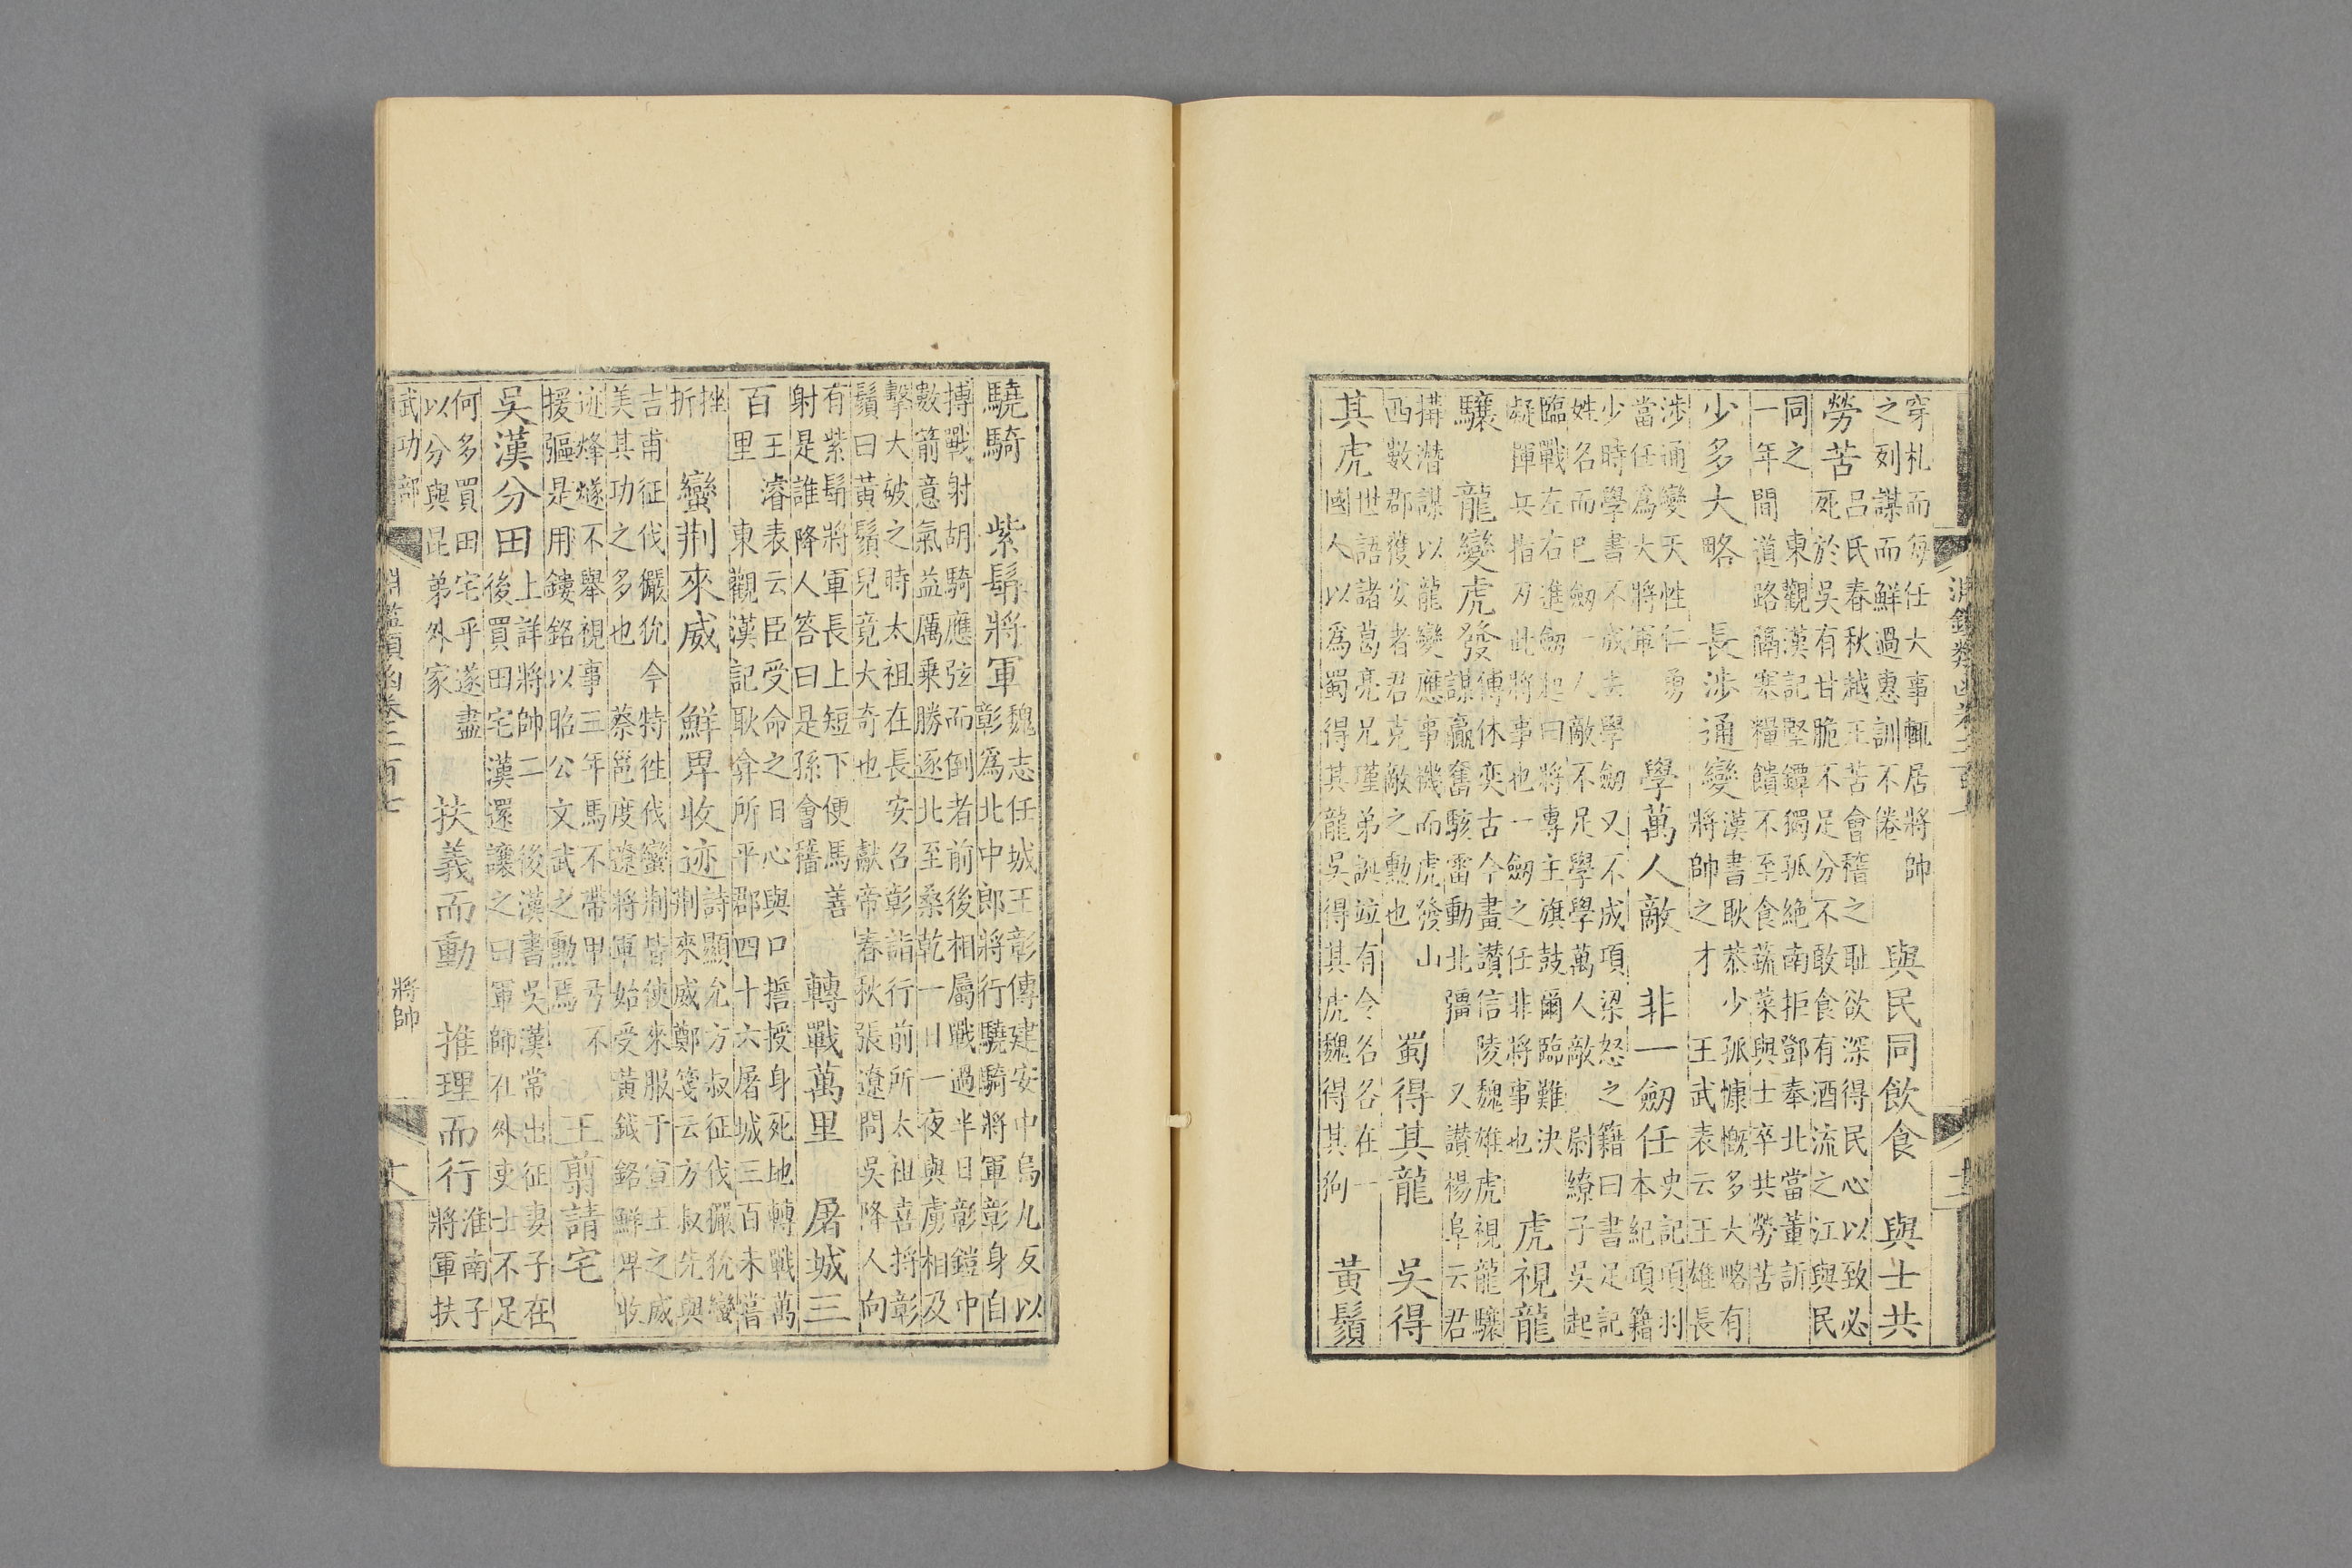 淵鑑類函卷二百七
穿札而每任大事輒居將帥
之列謀而鮮過惠訓不倦
與民同飲食　與士共
勞苦
呂氏春秋越王苦會稽之耻欲深得民心以致必
死於吳有甘脆不足分不敢食有酒流之江與民
同之　東觀漢記堅鐔獨孤絶南拒鄧奉北當董訢
一年間道路隔塞糧饋不至食蔬菜與士卒共勞苦
少多大略　長涉通變
漢書耿恭少孤慷慨多大略有
將帥之才　王武表云王雄長
涉通變天性仁勇
當任爲大將軍
學萬人敵　非一劒任
史記項羽
本紀項籍
少時學書不成去學劒又不成項梁怒之籍曰書足記
姓名而已劒一人敵不足學學萬人敵　尉繚子吳起
臨戰左右進劒起曰將專主旗鼓爾臨難決
疑揮兵指刃此將事也一劒之任非將事也
虎視龍
驤　龍變虎發
傅休奕古今畫讚信陵　魏雄虎視龍驤
謀贏奮駭雷動北疆　又讚楊阜云君
搆潛謀以龍變應事機而虎發山
西數郡獲安者君克敵之勲也
蜀得其龍　吳得
其虎
世語諸葛亮兄瑾弟誕竝有令名各在一
國人以爲蜀得其龍吳得其虎魏得其狗
黃鬚
驍騎　紫髯將軍
魏志任城王彰傳建安中烏丸反以
彰爲北中郎將行驍騎將軍彰身自
搏戰射胡騎應弦而倒者前後相屬戰過半日彰鎧中
數箭意氣益厲乗勝逐北至桑乾一日一夜與虜相及
擊大破之時太祖在長安召彰詣行前所太祖喜捋彰
鬚曰黃鬚兒竟大奇也　獻帝春秋張遼問吳降人向
有紫髯將軍長上短下便馬善
射是誰降人答曰是孫會稽
轉戰萬里　屠城三
百
王濬表云臣受命之日心與口擔授身死地轉戰萬
里　東觀漢記耿弇所平郡四十六屠城三百未嘗
挫
折
蠻荆來威　鮮卑收迹
詩顯允方叔征伐玁狁蠻
荆來威鄭箋云方叔先與
吉甫征伐玁狁今特往伐蠻荆皆使來服于宣王之威
美其功之多也　蔡邕度遼將軍始受黃鉞銘鮮卑收
迹烽燧不舉視事三年馬不帶甲弓不
援彄是用鏤銘以昭公文武之勲焉
王翦請宅
吳漢分田
上詳將帥二　後漢書吳漢常出征妻子在
後買田宅漢還讓之曰軍師在外吏士不足
何多買田宅乎遂盡
以分與昆弟外家
扶義而動　推理而行
淮南子
將軍扶
武功部
淵鑑類函卷二百七
將帥